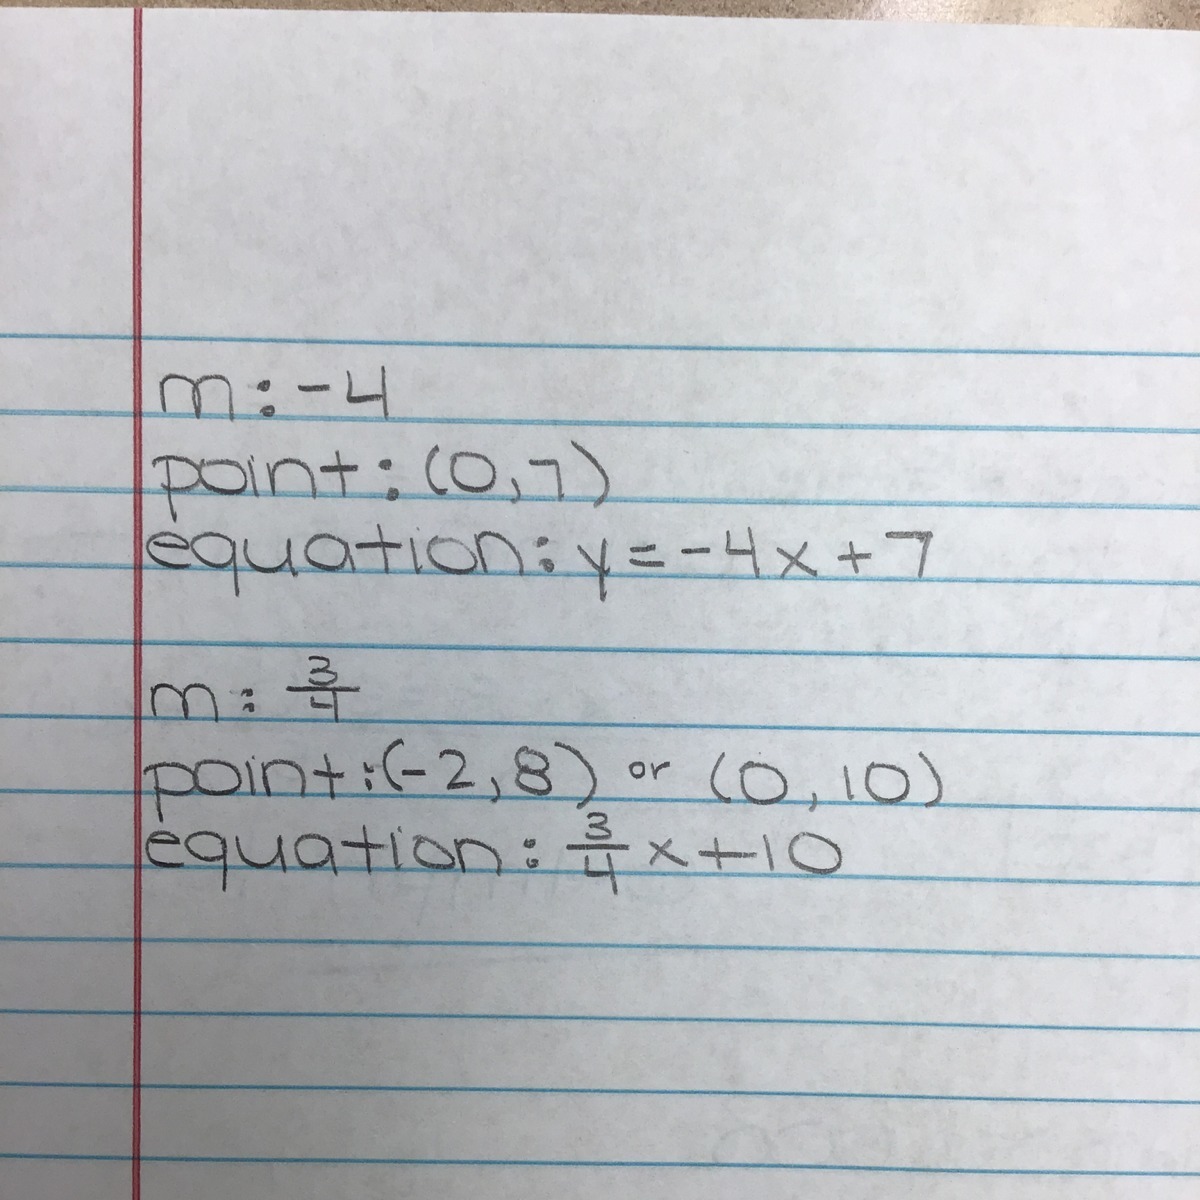 m: -4
point: (0,7)
equation: y = -4x + 7
m: 3/4
point: (-2,8) or (0,10)
equation: 3/4 x + 10